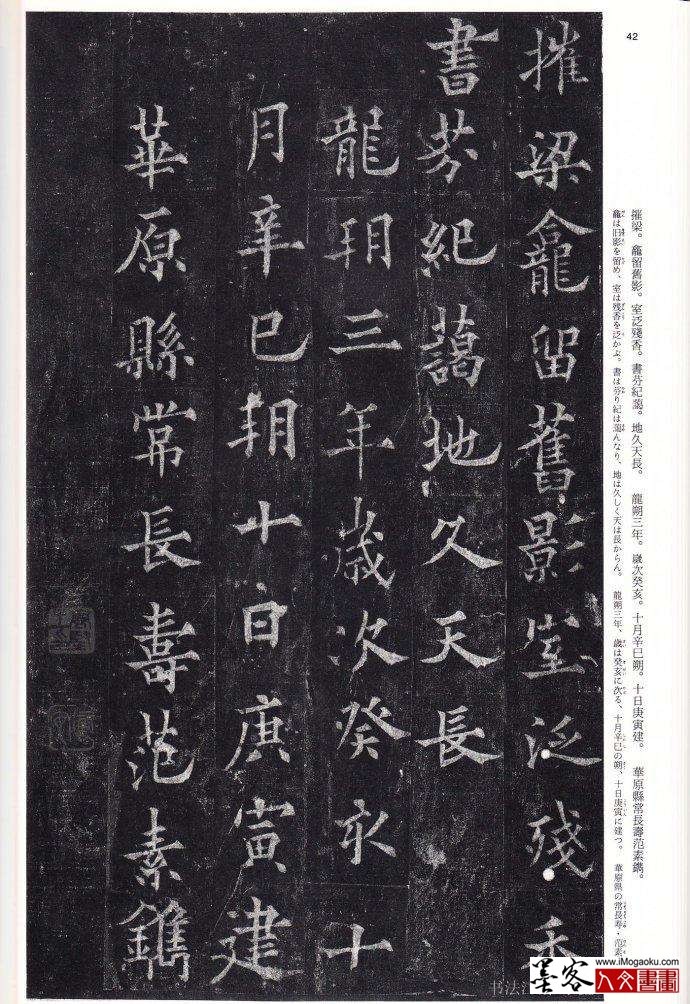 42
摧梁龕留舊影室泛殘香
書芬紀藹地久天長
龍朔三年歲次癸亥十
月辛巳朔十日庚寅建
華原縣常長壽范素鐫
摧梁。龕留舊影。室泛殘香。書芬紀藹。地久天長。　龍朔三年。歲次癸亥。十月辛巳朔。十日庚寅建。　華原縣常長壽范素鐫。
龕は旧影を留め、室は残香を泛かぶ。書は芬り紀は藹んなり、地は久しく天は長からん。　龍朔三年、歳は癸亥に次る、十月辛巳の朔、十日庚寅に建つ。　華原県の常長寿・范素
书法
墨客
www.iMogaoku.com
人文書畫